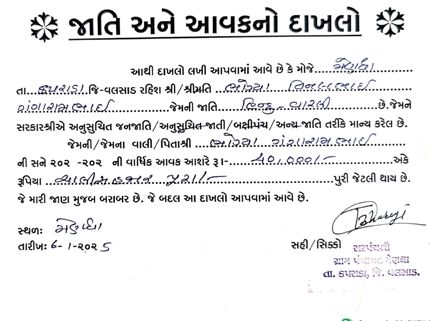 જાતિ અને આવકનો દાખલો
આથી દાખલો લખી આપવામાં આવે છે કે મોજે મેણધા
તા. કપરાડા જિ-વલસાડ રહિશ શ્રી/શ્રીમતિ ભોયા
ગંગારામભાઈ જેમની જાતિ હિન્દુ-વારલી છે.જેમને
સરકારશ્રીએ અનુસુચિત જનજાતિ/અનુસુચિત-જાતી/બક્ષીપંચ/અન્ય જાતિ તરીકે માન્ય કરેલ છે.
જેમની/જેમના વાલી/પિતાશ્રી ભોયા ગંગારામભાઈ
ની સને ૨૦૨ -૨૦૨ ની વાર્ષિક આવક આશરે રૂા- ૪૦,૦૦૦/- અંકે
રૂપિયા ચાલીસ હજાર પુરા/- પુરી જેટલી થાય છે.
જે મારી જાણ મુજબ બરાબર છે. જે બદલ આ દાખલો આપવામાં આવે છે.
સ્થળઃ મેણધા
તારીખઃ 6-1-૨૦૨5
સહી/સિક્કો સરપંચશ્રી
ગ્રામ પંચાયત મેણધા
તા. કપરાડા, જિ. વલસાડ.